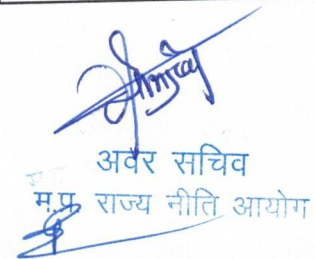 अवर सचिव
म.प्र. राज्य नीति आयोग